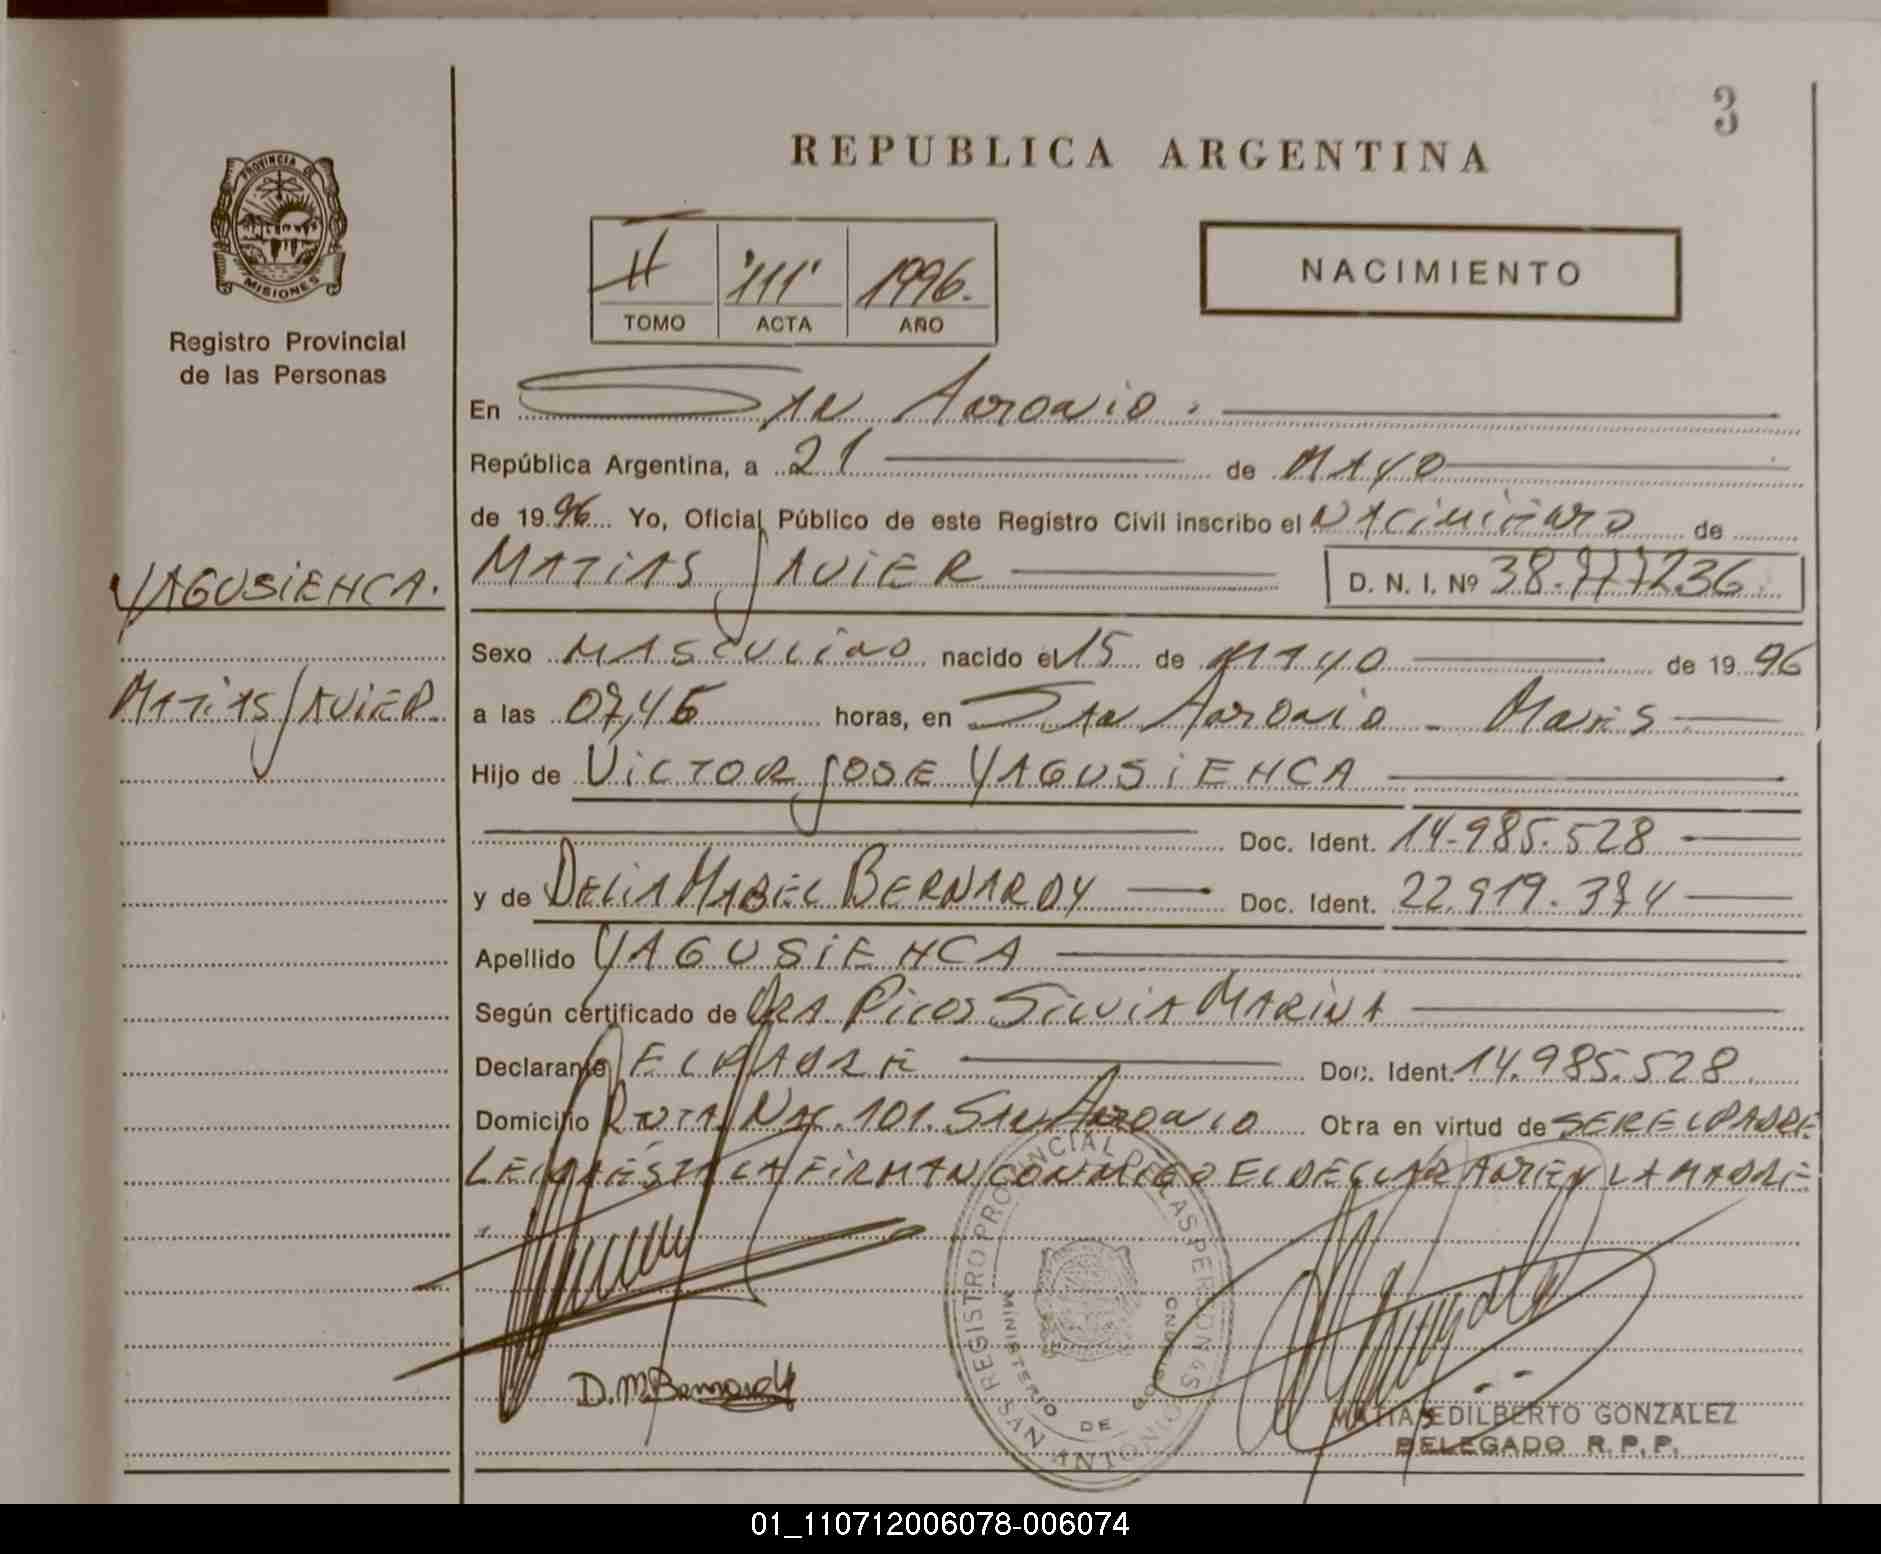 3
REPUBLICA ARGENTINA
PROVINCIA DE
MISIONES
Registro Provincial
de las Personas
II '111' 1996.
TOMO ACTA AÑO
NACIMIENTO
En SAN ANTONIO.
República Argentina, a 21 de MAYO
de 1996 Yo, Oficial Público de este Registro Civil inscribo el NACIMIENTO de
MATIAS JAVIER D. N. I. Nº 38.777236
YAGUSIEHCA.
MATIAS JAVIER
Sexo MASCULINO nacido el 15 de MAYO de 1996
a las 07,45 horas, en SAN ANTONIO - Mones
Hijo de VICTOR JOSE YAGUSIEHCA
Doc. Ident. 14-985.528
y de DELIA MABEL BERNARDY Doc. Ident. 22.919.374
Apellido YAGUSIEHCA
Según certificado de DRA. PICOS SILVIA MARINA
Declarante EL PADRE Doc. Ident. 14.985.528
Domicilio RUTA NAC. 101. SAN ANTONIO Obra en virtud de SER EL PADRE
LEIDA ESTA LA FIRMAN CONMIGO EL DECLARANTE Y LA MADRE
REGISTRO PROVINCIAL DE LAS PERSONAS
MINISTERIO DE GOBIERNO
SAN ANTONIO
D. M. Bernardy
MATIAS EDILBERTO GONZALEZ
DELEGADO R.P.P.
01_110712006078-006074